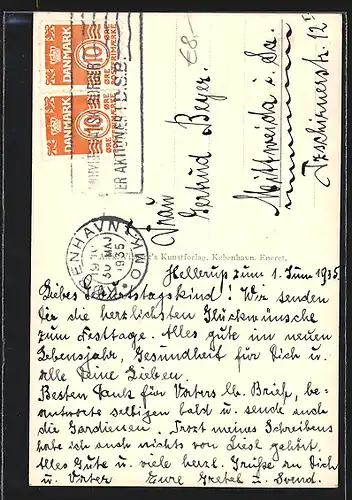 €8,-
DANMARK 10 ØRE
DANMARK 10 ØRE
KØBENHAVN OMK.
30 MAJ
1935
Frau
Gertrud Beyer.
Mittweida i. Sa.
Tzschirnerstr. 12
Kunstforlag, København. Eneret.
Hellerup zum 1. Juni 1935.
Liebes Geburtstagskind! Wir senden
Dir die herzlichsten Glückwünsche
zum Festtage. Alles gute im neuen
Lebensjahr, Gesundheit für Dich u.
alle Deine Lieben.
Besten Dank für Vaters lb. Brief, be-
antworte selbigen bald u. sende auch
die Gardienen. Trozt meines Schreibens
habe ich auch nichts von Liesl gehört.
Alles Gute u. viele herzl. Grüße an Dich
u. Vater Eure Gretel u. Svend.